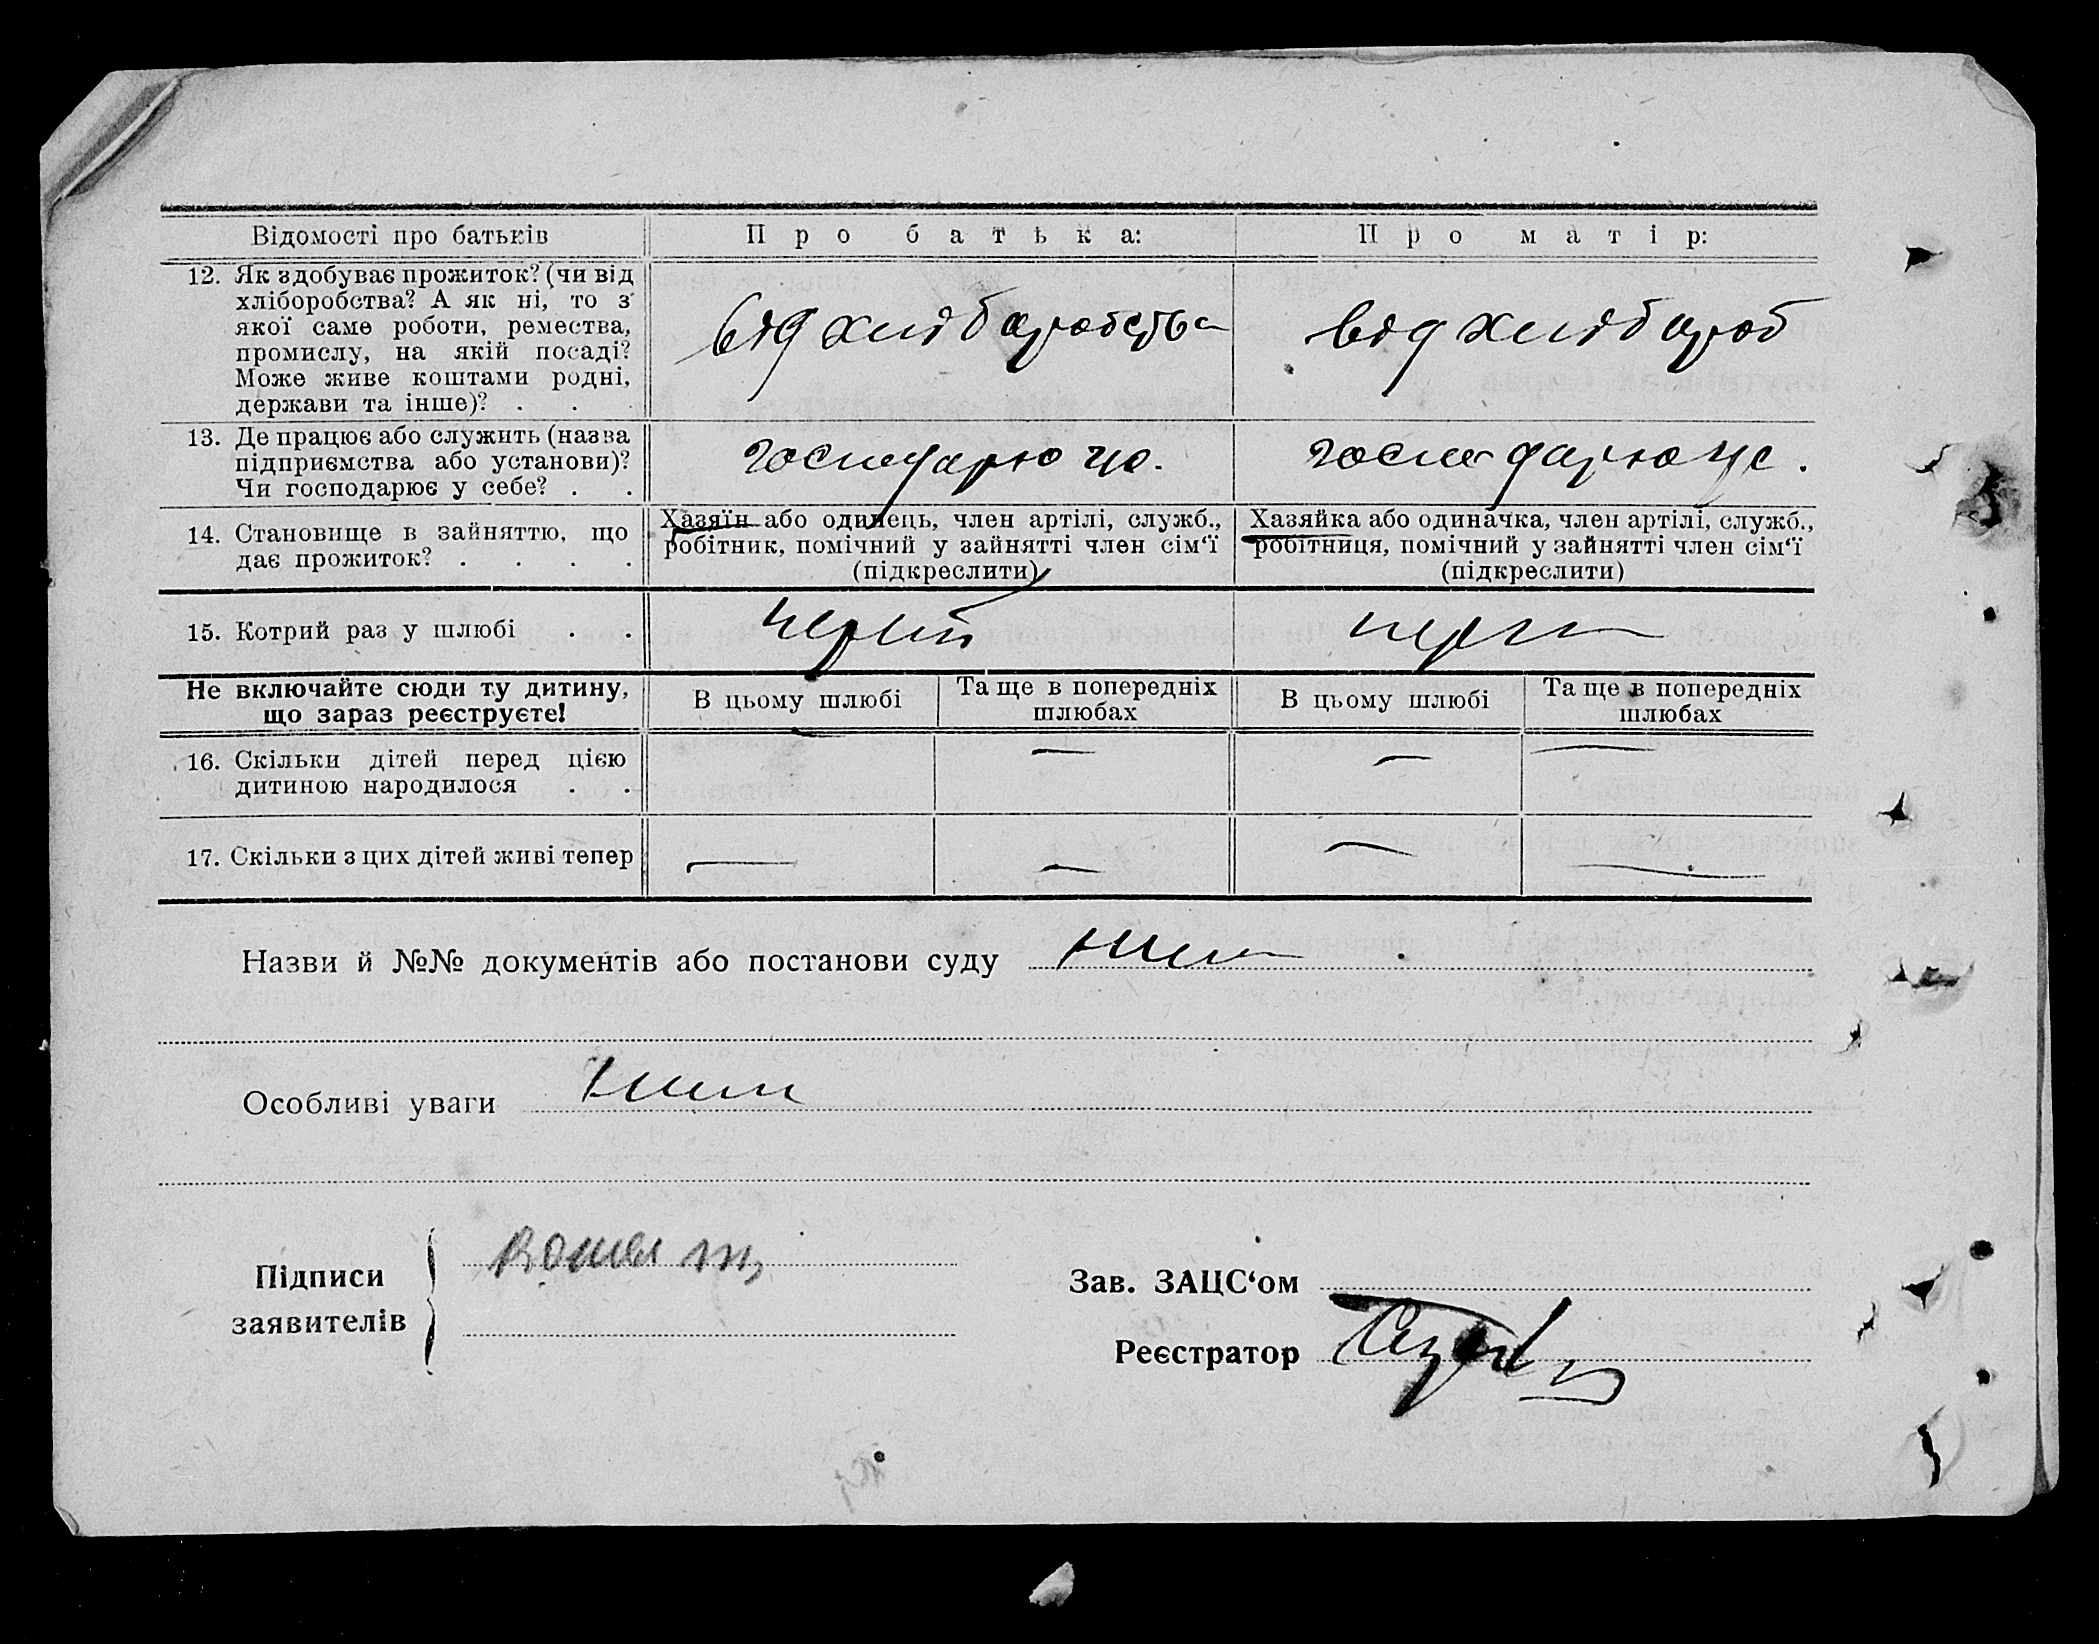 Відомості про батьків Про батька: Про матір:
12. Як здобуває прожиток? (чи від
хліборобства? А як ні, то з
якої саме роботи, ремества,
промислу, на якій посаді?
Може живе коштами родні,
держави та інше)? . .
від хліборобства від хлібороб
13. Де працює або служить (назва
підприємства або установи)?
Чи господарює у себе? . .
господарює
14. Становище в зайняттю, що
дає прожиток? . . . .
Хазяїн або одинець, член артілі, служб.,
робітник, помічний у зайнятті член сім‘ї
(підкреслити)
Хазяйка або одиначка, член артілі, служб.,
робітниця, помічний у зайнятті член сім‘ї
(підкреслити)
15. Котрий раз у шлюбі . . перший перш
Не включайте сюди ту дитину,
що зараз реєструєте!
В цьому шлюбі
Та ще в попередніх
шлюбах
В цьому шлюбі
Та ще в попередніх
шлюбах
16. Скільки дітей перед цією
дитиною народилося . .
— — — —
17. Скільки з цих дітей живі тепер — — — —
Назви й №№ документів або постанови суду
Особливі уваги
Підписи
заявителів
Зав. ЗАЦС‘ом
Реєстратор